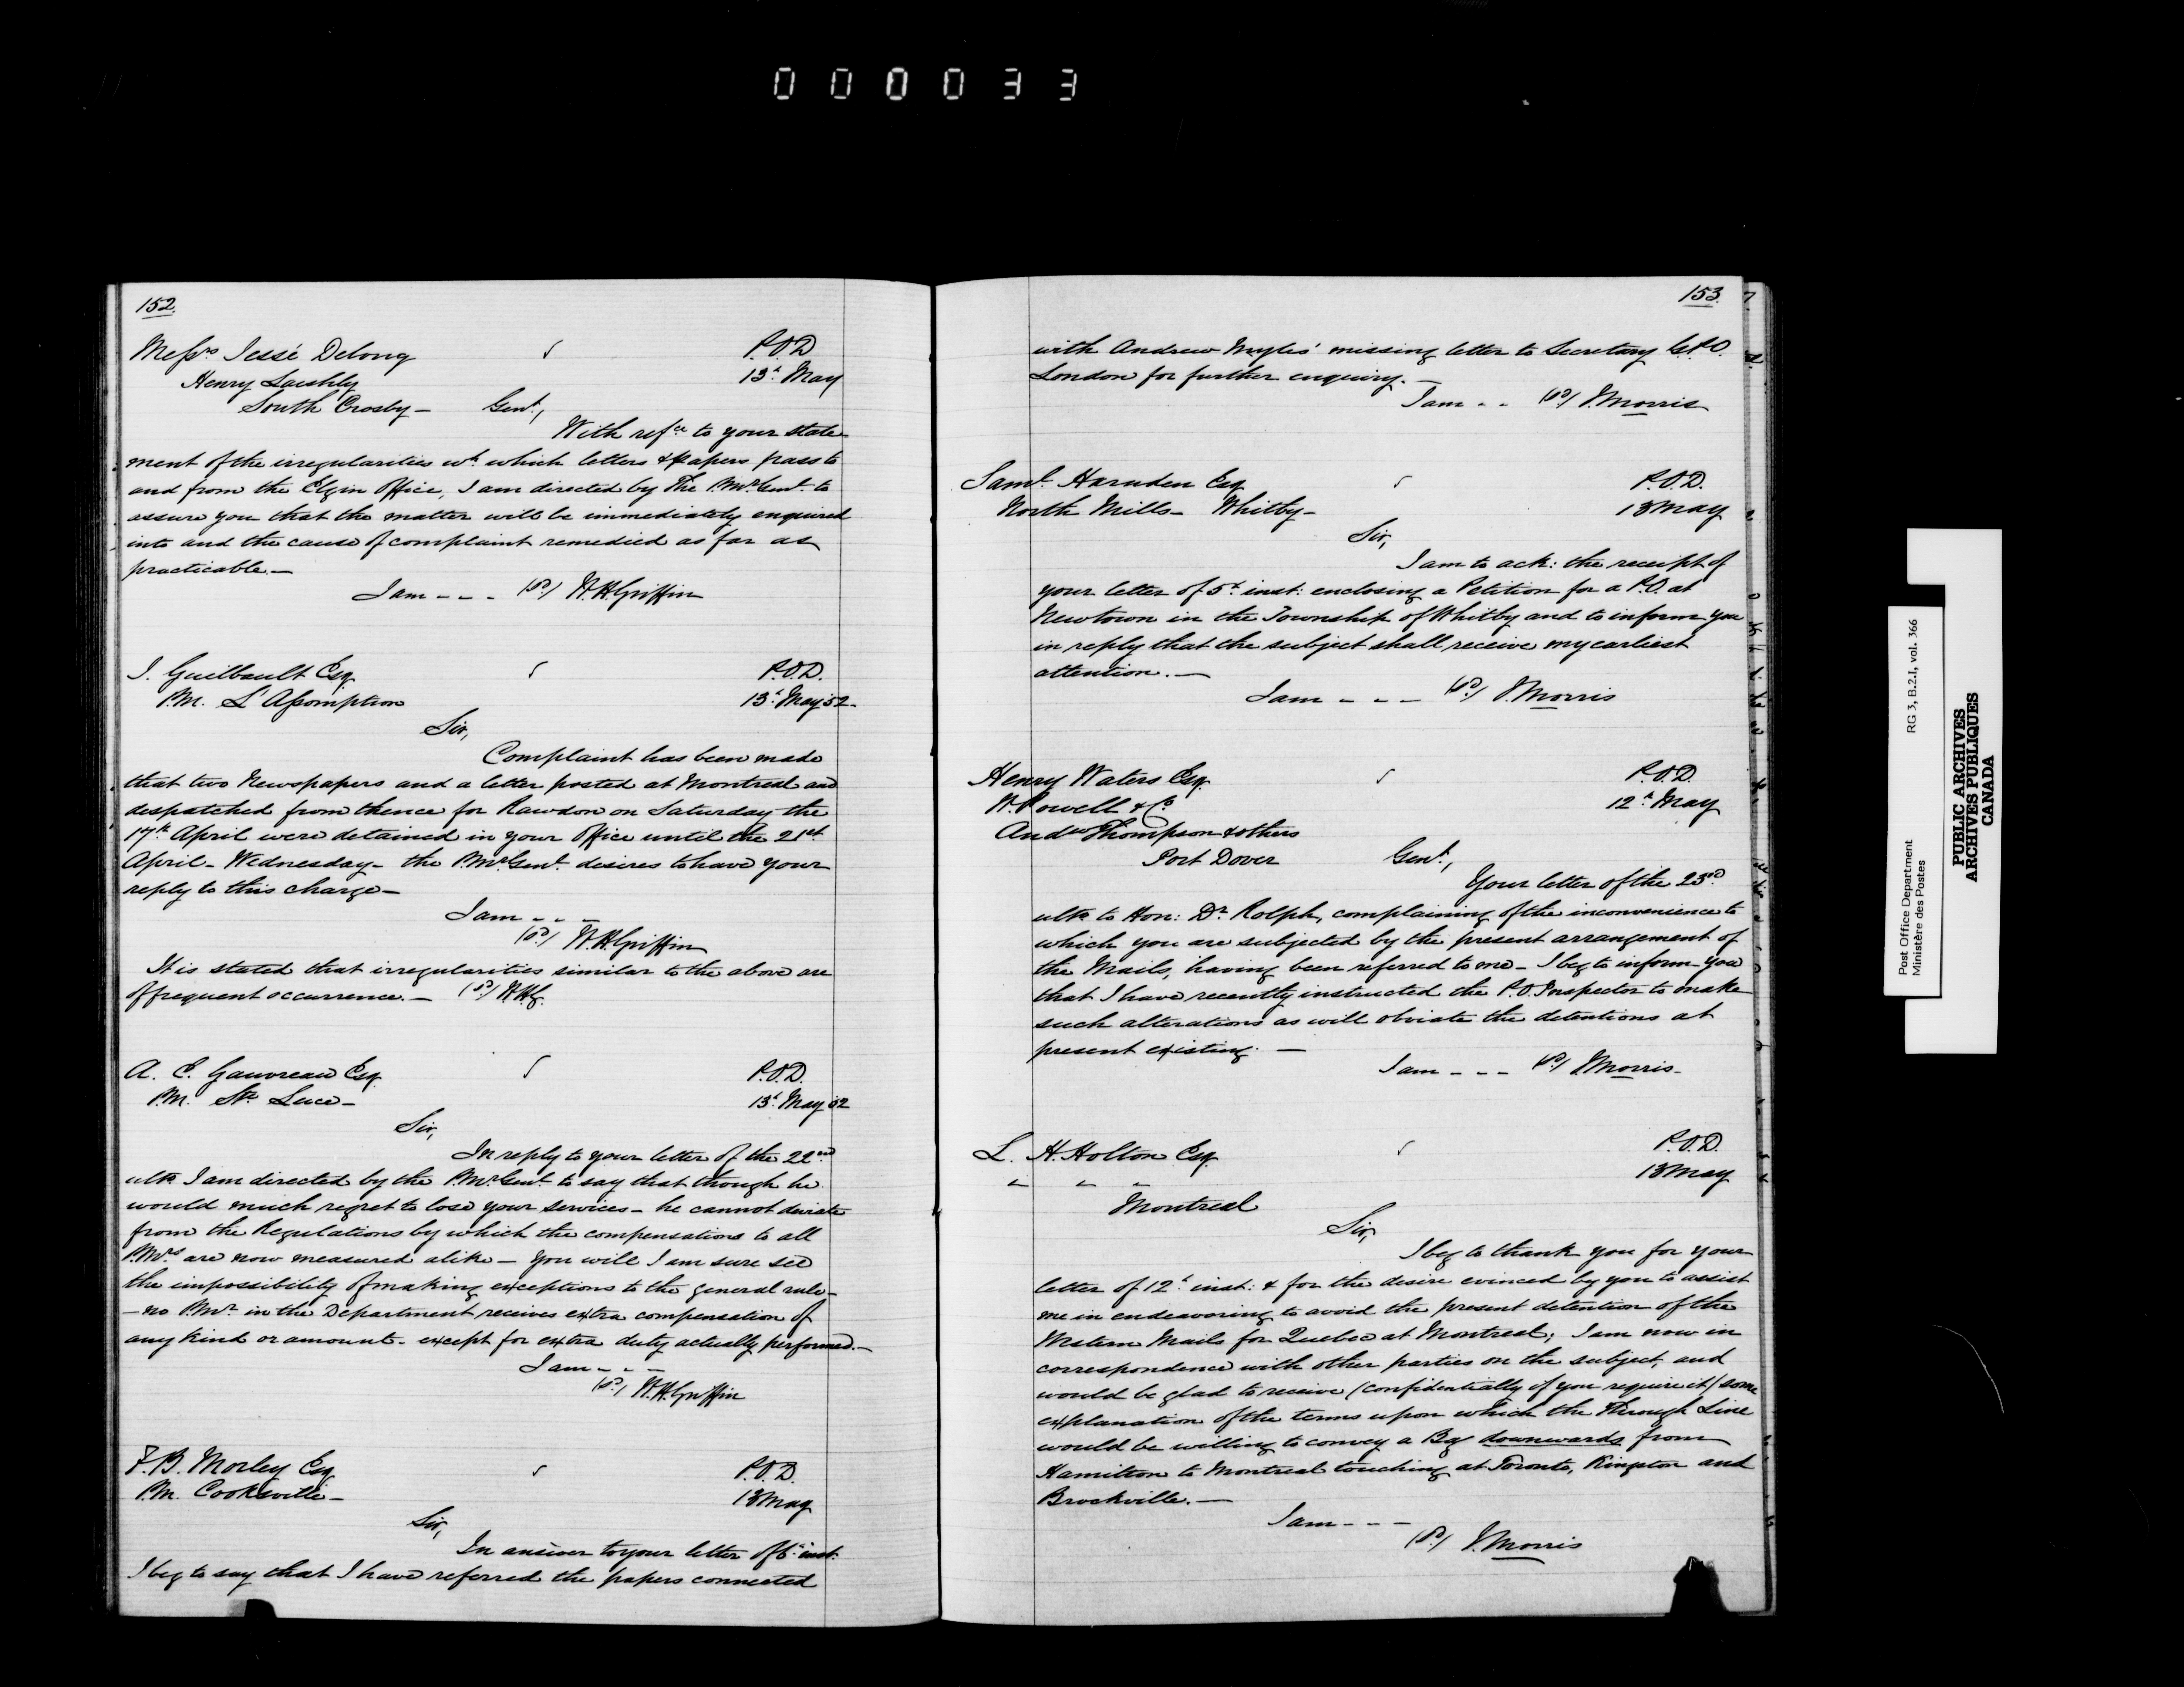 000033
152.
Messrs. Jessé Delong
P.O.D
Henry Laishly
13th May
South Crosby — Gent,
With refce to your state
ment of the irregularities wh. which letters & papers pass to
and from the Elgin Office, I am directed by The P.Mr.Genl. to
assure you that the matter will be immediately enquired
into and the cause of complaint remedied as far as
practicable. —
I am - - - (Sd.) W.H.Griffin
J. Guilbault Esq.
P.O.D.
P.M. L'Assomption
13th May 52.
Sir,
Complaint has been made
that two Newspapers and a letter posted at Montreal and
despatched from thence for Rawdon on Saturday the
17th April were detained in your Office until the 21st
April - Wednesday - the P.Mr.Genl. desires to have your
reply to this charge —
I am - - -
(Sd.) W.H.Griffin
It is stated that irregularities similar to the above are
of frequent occurrence. — (Sd.) W.H.G.
A. E. Gauvreau Esq.
P.O.D.
P.M. Ste. Luce —
13th May 52
Sir,
In reply to your letter of the 22nd
ulto. I am directed by the P.Mr.Genl. to say that though he
would much regret to lose your services - he cannot deviate
from the Regulations by which the compensations to all
P.Mrs. are now measured alike — you will I am sure see
the impossibility of making exceptions to the general rule -
- no P.Mr. in the Department receives extra compensation of
any kind or amount - except for extra duty actually performed. —
I am - - -
(Sd.) W.H.Griffin
F.B. Morley Esq.
P.O.D.
P.M. Cooksville —
13 May
Sir,
In answer to your letter of 6th inst.
I beg to say that I have referred the papers connected
153.
with Andrew Myles' missing letter to Secretary G.P.O.
London for further enquiry. —
I am - - (Sd.) J.Morris
Saml. Harnden Esq.
P.O.D.
North Mills - Whitby -
13 May
Sir,
I am to ack: the receipt of
your letter of 5th inst: enclosing a Petition for a P.O. at
Newtown in the Township of Whitby and to inform you
in reply that the subject shall receive my earliest
attention. —
I am - - - (Sd.) J.Morris
Henry Waters Esq.
P.O.D.
W. Powell & Co.
12th May
Andw Thompson & others
Port Dover Gent,
Your letter of the 23rd
ulto. to Hon: Dr. Rolph, complaining of the inconvenience to
which you are subjected by the present arrangement of
the Mails, having been referred to me - I beg to inform you
that I have recently instructed the P.O. Inspector to make
such alterations as will obviate the detentions at
present existing. —
I am - - - (Sd.) J.Morris -
L. H. Holton Esq.
P.O.D.
" " "
13 May
Montreal
Sir,
I beg to thank you for your
letter of 12th inst: & for the desire evinced by you to assist
me in endeavoring to avoid the present detention of the
Western Mails for Quebec at Montreal; I am now in
correspondence with other parties on the subject, and
would be glad to receive (confidentially if you require it) some
explanation of the terms upon which the Through Line
would be willing to convey a Bag downwards from
Hamilton to Montreal touching at Toronto, Kingston and
Brockville. —
I am - - -
(Sd.) J.Morris
Post Office Department RG 3, B.2.I, vol. 366
Ministère des Postes
PUBLIC ARCHIVES
ARCHIVES PUBLIQUES
CANADA